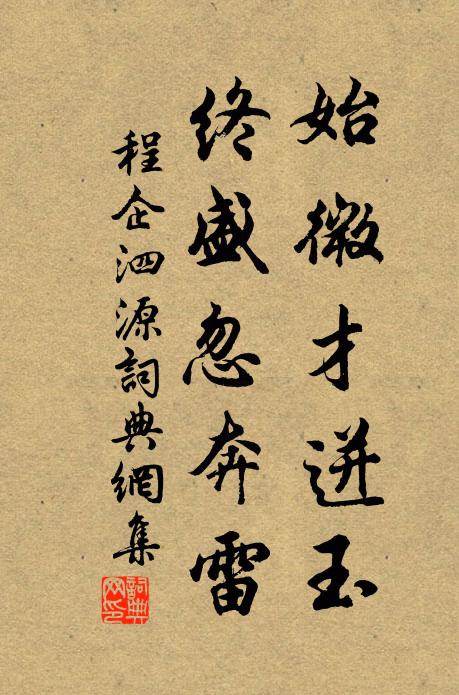 始微才迸玉
終盛忽奔雷
程企泗源詞典網集
詞典網印